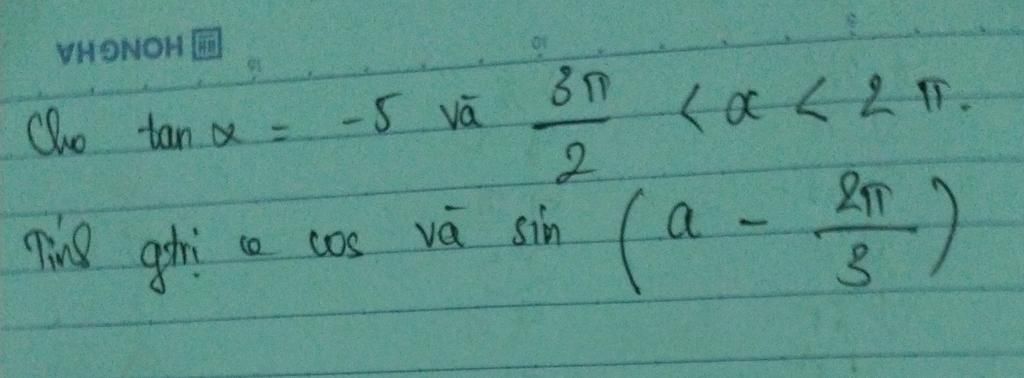 HONGHA
Cho tan α = -5 và 3π/2 < α < 2π.
Tính gtrị cos và sin (a - 2π/3)